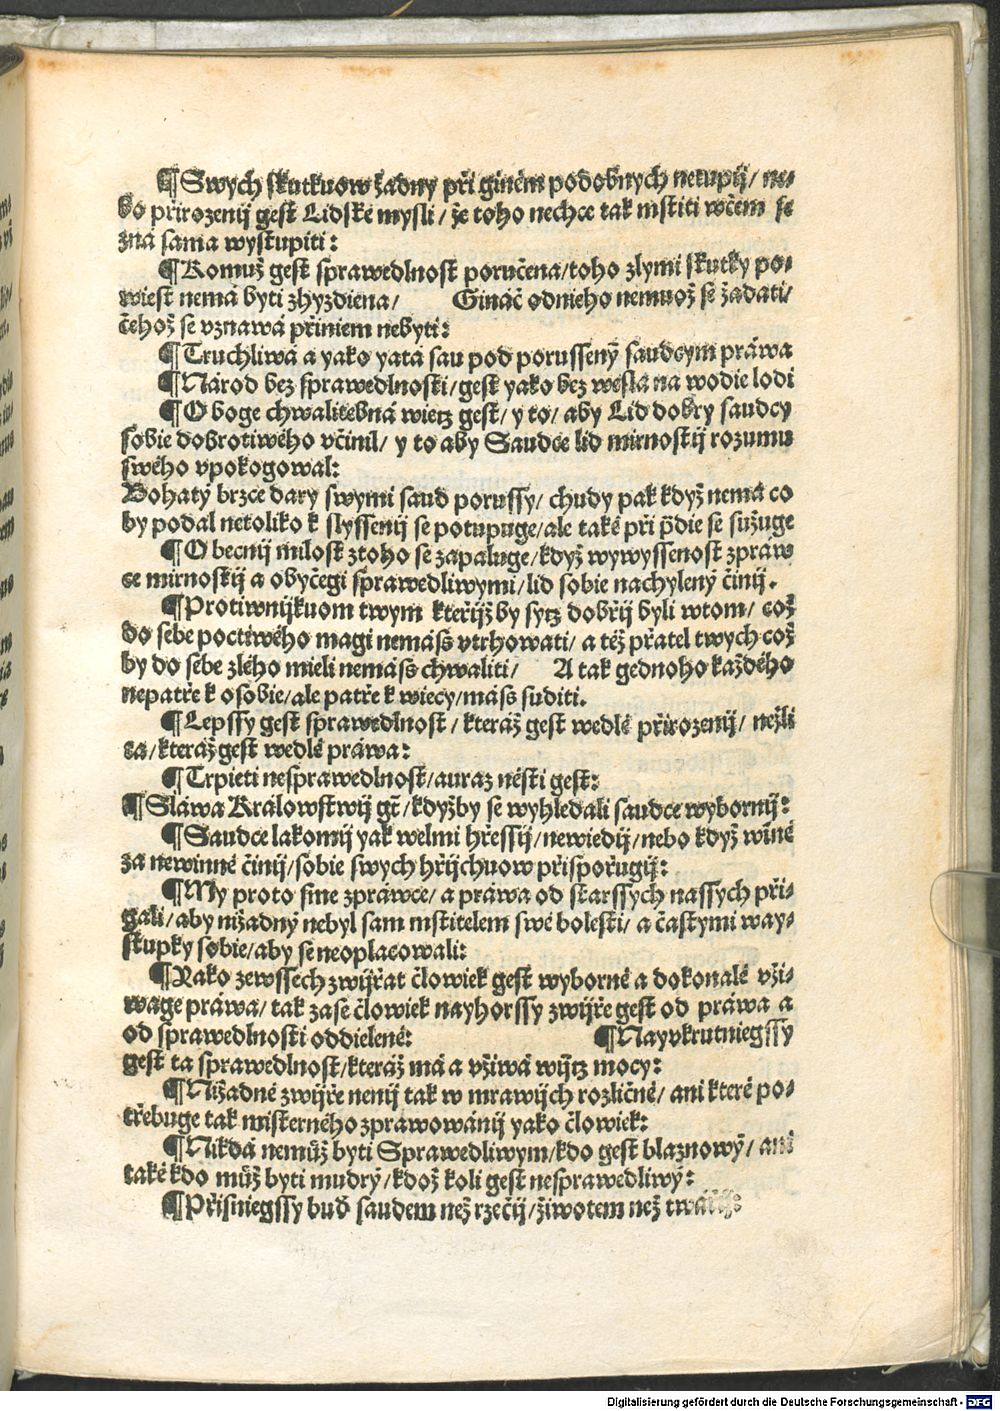 ¶Swych skutkuow žadny při giném podobnych netupij/ ne⸗
bo přirozenij gest Lidske mysli / že toho nechce tak mstiti wčem se
zná sama wystupiti:
¶Komuž gest sprawedlnost poručena/toho zlymi skutky po⸗
wiest nemá byti zhyzdiena/ Gináč odnieho nemuož se žadati/
čehož se vznawá přiniem nebyti:
¶Truchliwá a yako yatá sau pod porusseny̌ saudcym práwa
¶Národ bez sprawedlnosti/gest yako bez wesla na wodie lodi
¶O boge chwalitebná wietz gest/ y to/ aby Lid dobry saudcy
sobie dobrotiwého včinil/ y to aby Saudce lid mirnostij rozumu
swého vpokogowal:
Bohatý brzce dary swymi saud porussy/ chudy pak když nemá co
by podal netoliko k slyssenij se potupuge/ale také při p̌die se sužuge
¶O becnij milost ztoho se zapaluge/když wywyssenost zpráw
ce mirnostij a obyčegi sprawedliwymi/lid sobie nachylený činij.
¶Protiwnijkuom twym kteřijž by sytz dobřij byli wtom/ což
do sebe poctiwého magi nemáss vtrhowati/ a též přatel twych což
by do sebe zlého mieli nemáss chwaliti/ A tak gednoho každého
nepatře k osobie/ale patře k wiecy/máss suditi.
¶Lepssy gest sprawedlnost / kteráž gest wedlé přirozenij/ nežli
ta/kteráž gest wedlé práwa:
¶Trpieti nesprawedlnost/auraz nésti gest:
¶Sláwa Králowstwij gt̃ /kdyžby se wyhledali saudce wybornij:
¶Saudce lakomij yak welmi hřessij/newiedij/nebo když wiñé
za newinné činij/sobie swych hřijchuow přispořugij:
¶My proto sme zpráwce/ a práwa od starssych nassych při⸗
gali/ aby nižadný nebyl sam mstitelem swé bolesti/ a častymi way⸗
stupky sobie/aby se neoplacowali:
¶Yako zewssech zwijřat človiek gest wyborné a dokonalé vži⸗
wage práwa/ tak zase človiek nayhorssy zwijře gest od práwa a
od sprawedlnosti oddielené: ¶Nayvkrutniegssy
gest ta sprawedlnost/kteráž má a vžiwá wijtz mocy:
¶Nižadné zwijře nenij tak w mrawijch rozličné/ ani které po⸗
třebuge tak misterného zprawowánij yako človiek:
¶Nikdá nemůž byti Sprawedliwym/kdo gest blaznowý/ ani
také kdo můž byti mudrý/ kdož koli gest nesprawedliwý:
¶Přisniegssy buď saudem než rzečij/životem než twářij:
Digitalisierung gefördert durch die Deutsche Forschungsgemeinschaft - DFG